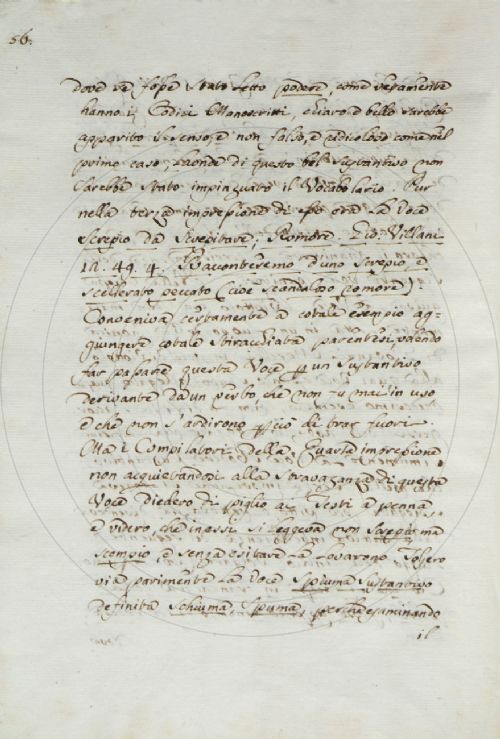 56.
dove se fosse stato letto podere, come veramente
hanno i Codici Manoscritti, chiaro e bello sarebbe
apparito il senso, e non falso, e ridicoloso come nel
primo caso. Laonde di questo bel sustantivo non
sarebbe stato impinguato il Vocabolario. Pur
nella terza impressione di esso era la voce
Screpio da Strepitare, Romore Gio: Villani
12. 49. 4. Racconteremo d'uno screpio e
scellerato peccato (cioè scandaloso romore)
Conveniva certamente a cotale esempio ag-
giungere cotale stiracchiata parentesi, volendo
far passare questa Voce per un sustantivo
derivante da un verbo che non fu mai in uso
e che non s'ardirono perciò di trar fuori.
Ma i Compilatori della Quarta impressione
non acquietandosi alla stravaganza di questa
Voce diedero di piglio ai Testi a penna
e videro, che in essi si legeva non screpio, ma
scempio, e senza esitare la levarono. Tolsero
via parimente la voce Spiuma sustantivo
definita Schiuma, Spuma, perchè esaminando
il